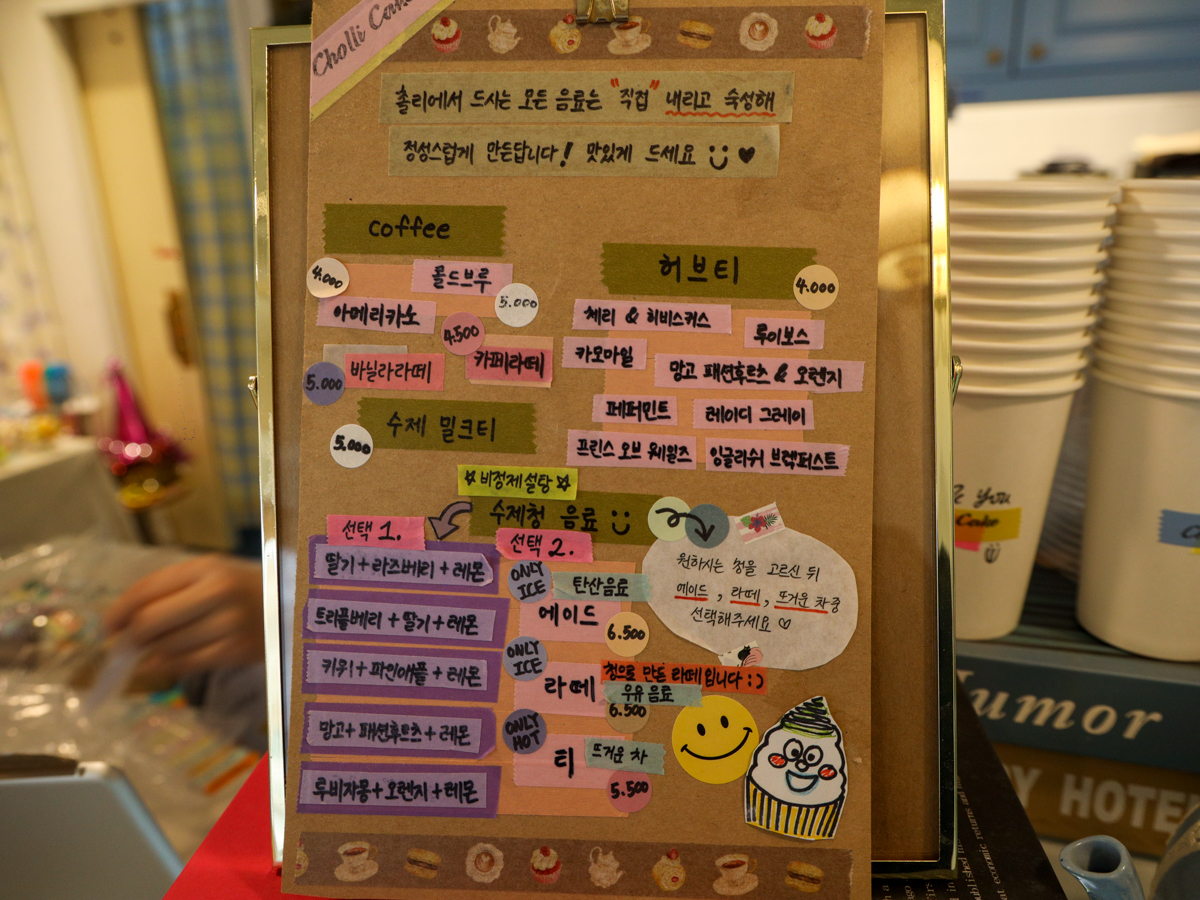 Cholli Cake
촐리에서 드시는 모든 음료는 "직접" 내리고 숙성해
정성스럽게 만든답니다! 맛있게 드세요
coffee
4.000
콜드브루
5.000
아메리카노
4.500
카페라떼
바닐라라떼
5.000
수제 밀크티
5.000
허브티
4.000
체리 & 히비스커스
루이보스
카모마일
망고 패션후르츠 & 오렌지
페퍼민트
레이디 그레이
프린스 오브 웨일즈
잉글리쉬 브렉퍼스트
비정제설탕
수제청 음료
선택 1.
딸기+라즈베리+레몬
트리플베리+딸기+레몬
키위+파인애플+레몬
망고+패션후르츠+레몬
루비자몽+오렌지+레몬
선택 2.
ONLY ICE
탄산음료
에이드
6.500
ONLY ICE
라떼
청으로 만든 라떼입니다 :)
우유 음료
6.500
ONLY HOT
티
뜨거운 차
5.500
원하시는 청을 고르신 뒤
에이드, 라떼, 뜨거운 차 중
선택해주세요
you
Cake
umor
HOTE